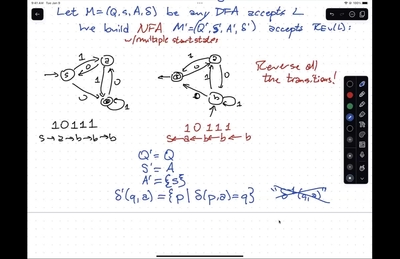 Let M=(Q,s,A,δ) be any DFA accepts L
We build NFA M'=(Q',S',A',δ') accepts REV(L):
w/multiple start states
Reverse all
the transitions!
1 0 1 1 1
s→a→b→b→b
1 0 1 1 1
s←a←b←b←b
Q'=Q
S'=A
A'={s}
δ'(q,a)={p|δ(p,a)=q}
"δ⁻¹(q,a)"